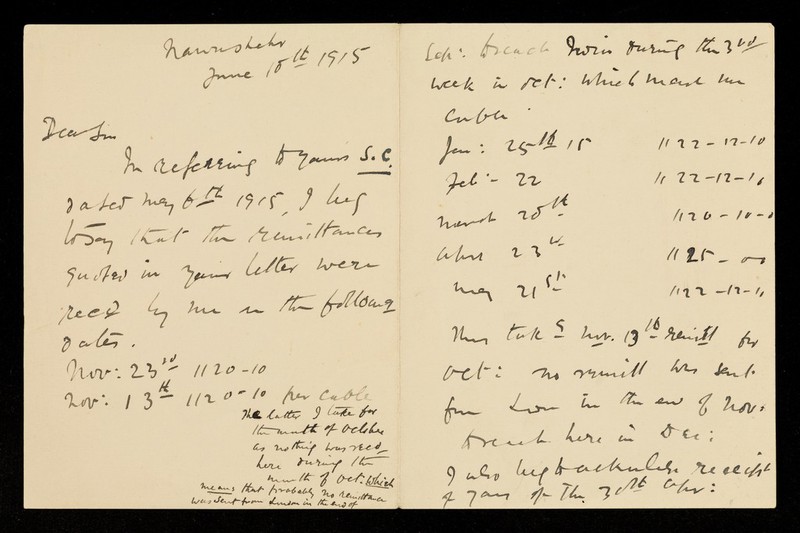 June 18th 1915
Dear Sir
In referring to yours S.C.
dated May 6th 1915, I beg
to say that the remittances
quoted in your letter were
recd by me on the following
dates.
Nov: 23rd 1120-10
Nov: 13th 1120-10 per cable
The latter I take for
the month of October
as nothing was recd
here during the
month of Oct: which
means that probably no remittance
was sent from London in the end of
Sep: to reach during the 3rd
week in Oct: which made me
cable
Jan: 25th 15 1122-12-10
Feb: 22 1122-12-10
March 20th 1120-10-0
April 23rd 1125-00
May 21st 1122-12-11
Nov. 13th remitt for
Oct: no remitt was sent
from in the end of Nov:
to reach here in Dec:
I also beg to receipt
of yours of 30th Apr: